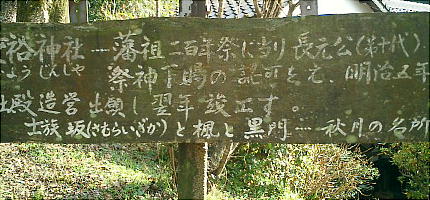 裕神社…藩祖二百年祭に当り長元公(第十代)
ようしんしゃ 祭神下賜の認可を 明治五年
社殿造営 生願し翌年竣工す。
士族坂(さむらいざか)と楓と黒門……秋月の名所